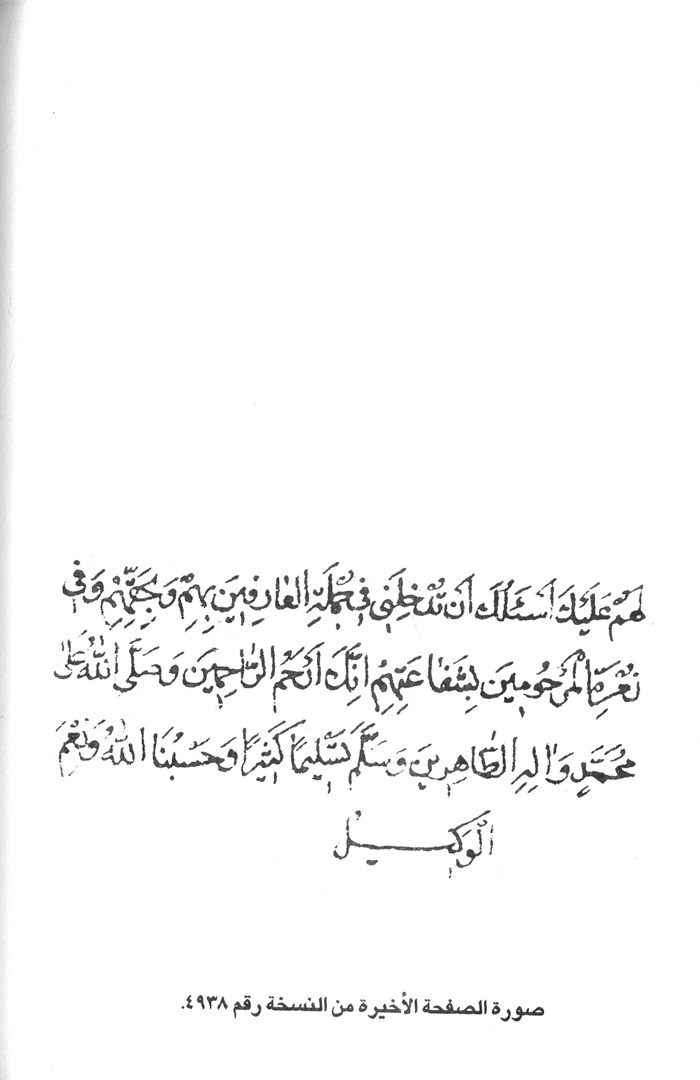 لَهُمْ عَلَيْكَ اَسْئَلُكَ اَنْ تُدْخِلَنِى فِى جُمْلَةِ الْعٰارِفِينَ بِهِمْ وَبِحَقِّهِمْ وَفِى
زُمْرَةِ الْمَرْحُومِينَ بِشَفٰاعَتِهِمْ اِنَّكَ اَرْحَمُ الرّٰاحِمِينَ وَصَلَّى اللّٰهُ عَلٰى
مُحَمَّدٍ وَاٰلِهِ الطّٰاهِرِينَ وَسَلَّمَ تَسْلِيمًا كَثِيرًا وَحَسْبُنَا اللّٰهُ وَنِعْمَ
الْوَكِيـــــلُ
صورة الصفحة الأخيرة من النسخة رقم ٤٩٣٨.